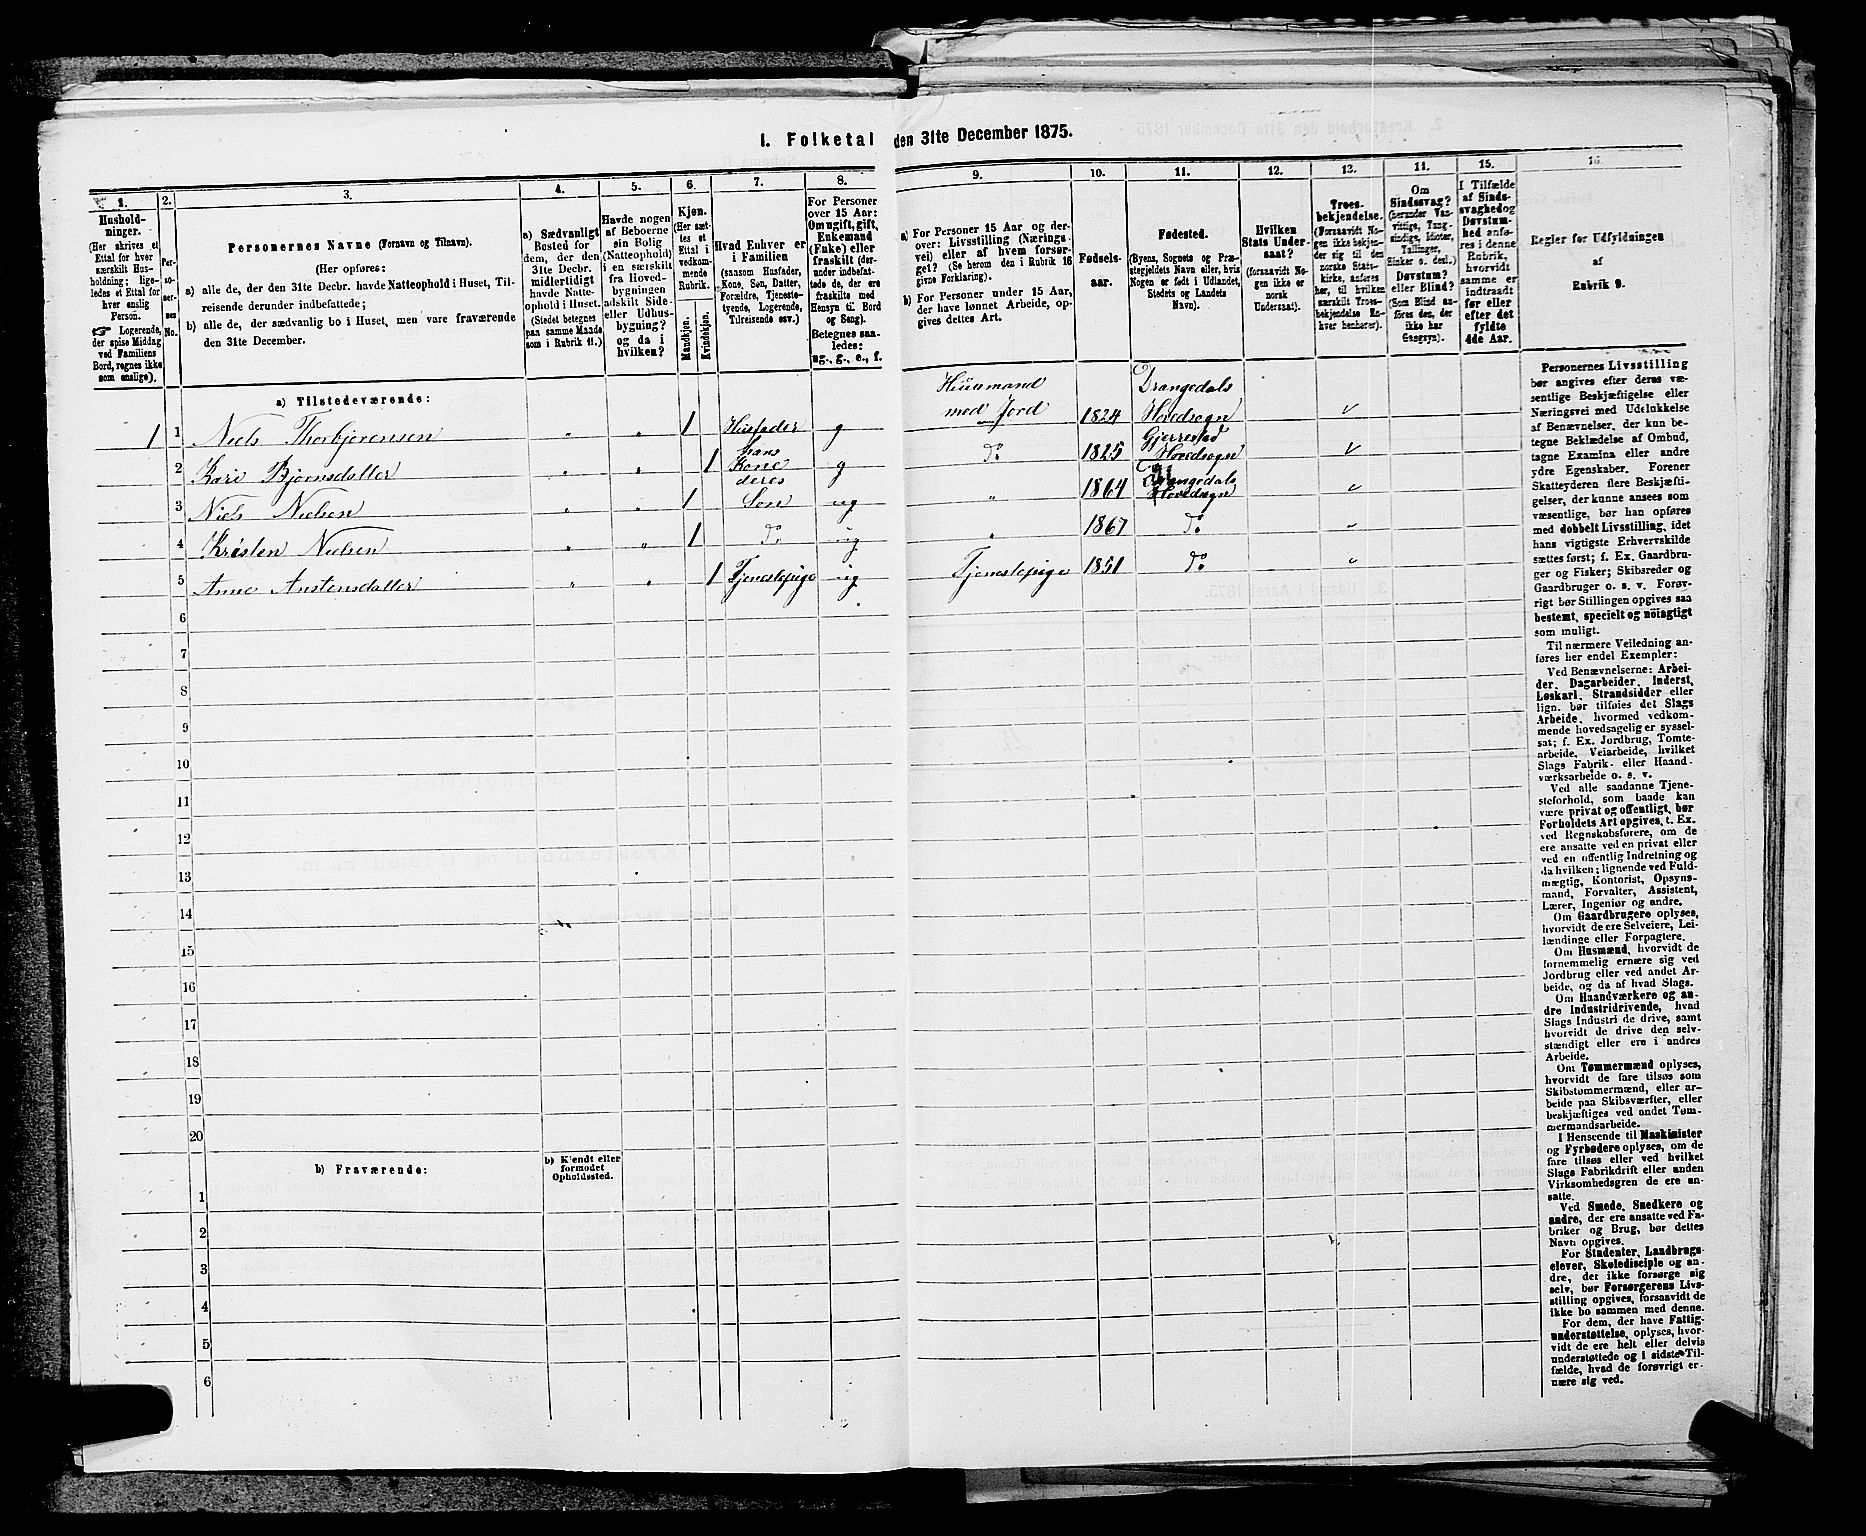 I. Folketal den 31te December 1875.
1. 2. 3. 4. 5. 6. 7. 8. 9. 10. 11. 12. 13. 14. 15. 16.
Husholdninger.
(Her skrives et
Ettal for hver
særskilt Husholdning;
ligeledes et Ettal for
hver enslig
Person.
☞ Logerende,
der spise Middag
ved Familiens
Bord, regnes ikke
som enslige).
Personernes No.
Personernes Navne (Fornavn og Tilnavn).
(Her opføres:
a) alle de, der den 31te Decbr. havde Natteophold i Huset, Tilreisende derunder indbefattede;
b) alle de, der sædvanlig bo i Huset, men vare fraværende
den 31te December.
a) Sædvanligt
Bosted for
dem, der den
31te Decbr.
midlertidigt
havde Natteophold i Huset.
(Stedet betegnes
paa samme Maade
som i Rubrik 11.)
Havde nogen
af Beboerne
sin Bolig
(Natteophold)
i en særskilt
fra Hovedbygningen
adskilt Side-
eller Udhusbygning?
og da i
hvilken?
Kjøn.
(Her sættes et
Ettal i
vedkommende
Rubrik.
Mandkjøn.
Kvindekjøn.
Hvad Enhver er
i Familien
(saasom Husfader,
Kone, Søn, Datter,
Forældre, Tjenestetyende, Logerende,
Tilreisende osv.)
For Personer
over 15 Aar:
Om ugift, gift,
Enkemand
(Enke) eller
fraskilt (derunder indbefattede de, der ere
fraskilte med
Hensyn til Bord
og Seng).
Betegnes saaledes:
ug., g., e., f.
a) For Personer 15 Aar og derover: Livsstilling (Næringsvei) eller af hvem forsørget? (Se herom den i Rubrik 16
givne Forklaring).
b) For Personer under 15 Aar,
der have lønnet Arbeide, opgives dettes Art.
Fødselsaar.
Fødested.
(Byens, Sognets og Præstegjeldets Navn eller, hvis
Nogen er født i Udlandet,
Stedets og Landets
Navn).
Hvilken
Stats Undersaat?
(forsaavidt Nogen ikke er
norsk
Undersaat).
Troesbekjendelse.
(Forsaavidt Nogen ikke bekjender sig til den
norske Statskirke, anføres
her, til hvilken
særskilt Troesbekjendelse Enhver henhører).
Om
Sindssvag?
(herunder Vanvittige, Tungsindige, Idioter,
Tullinger,
Sinker o. desl.)
Døvstum?
eller Blind?
(Som Blind anføres den, der
ikke har
Gangsyn).
I Tilfælde
af Sindssvaghed og
Døvstumhed anføres i denne
Rubrik,
hvorvidt
samme er
indtraadt
før eller
efter det
fyldte
4de Aar.
Regler for Udfyldningen
af
Rubrik 9.
a) Tilstedeværende:
1 1 Niels Thorbjørensen „ „ 1 Husfader g Huusmand med Jord 1824 Drangedals Hovedsogn ✓
2 Kari Bjørnsdatter „ „ 1 hans Kone g do 1825 Gjerrestad Hovedsogn ✓
3 Niels Nielsen „ „ 1 deres Søn ug „ 1864 Drangedals Hovedsogn ✓
4 Kristen Nielsen „ „ 1 do ug „ 1867 do ✓
5 Anne Anstensdatter „ „ 1 Tjenestepige ug Tjenestepige 1851 do ✓
6
7
8
9
10
11
12
13
14
15
16
17
18
19
20
b) Fraværende:
b) Kjendt eller
formodet
Opholdssted.
1
2
3
4
5
6
Personernes Livsstilling
bør angives efter deres væsentlige Beskjæftigelse eller
Næringsvei med Udelukkelse
af Benævnelser, der kun betegne Beklædelse af Ombud,
tagne Examina eller andre
ydre Egenskaber. Forener
Skatteyderen flere Beskjæftigelser, der kunne ansees som
væsentlige, bør han opføres
med dobbelt Livsstilling, idet
hans vigtigste Erhvervskilde
sættes først; f. Ex. Gaardbruger og Fisker; Skibsreder og
Gaardbruger o. s. v. Forøvrigt bør Stillingen opgives saa
bestemt, specielt og nöiagtigt
som muligt.
Til nærmere Veiledning anføres her endel Exempler:
Ved Benævnelserne: Arbeider, Dagarbeider, Inderst,
Løskarl, Strandsidder eller
lign. bør tilføies det Slags
Arbeide, hvormed vedkommende hovedsagelig er sysselsat; f. Ex. Jordbrug, Tomtearbeide, Veiarbeide, hvilket
Slags Fabrik- eller Haandværksarbeide o. s. v.
Ved alle saadanne Tjenesteforhold, som baade kan
være privat og offentligt, bør
Forholdets Art opgives, t. Ex.
ved Regnskabsførere, om de
ere ansatte ved en privat eller
ved en offentlig Indretning og
da hvilken; lignende ved Fuldmægtig, Kontorist, Opsynsmand, Forvalter, Assistent,
Lærer, Ingeniør og andre.
Om Gaardbrugere oplyses,
hvorvidt de ere Selveiere, Leilændinge eller Forpagtere.
Om Husmænd, hvorvidt de
fornemmelig ernære sig ved
Jordbrug eller ved andet Arbeide, og da af hvad Slags.
Om Haandværkere og andre Industridrivende, hvad
Slags Industri de drive, samt
hvorvidt de drive den selvstændigt eller ere i andres
Arbeide.
Om Tømmermænd oplyses,
hvorvidt de fare tilsøs som
Skibstømmermænd, eller arbeide paa Skibsværfter, eller
beskjæftiges ved andet Tømmermandsarbeide.
I Henseende til Maskinister
og Fyrbødere oplyses, om de
fare tilsøs eller ved hvilket
Slags Fabrikdrift eller anden
Virksomhedsgren de ere ansatte.
Ved Smede, Snedkere og
andre, der ere ansatte ved Fabriker og Brug, bør dettes
Navn opgives.
For Studenter, Landbrugselever, Skoledisciple og andre, der ikke forsørge sig
selv, bør Forsørgerens Livsstilling opgives, forsaavidt de
ikke bo sammen med denne.
For dem, der have Fattigunderstøttelse, oplyses, hvorvidt de ere helt eller delvis
understøttede og i sidste Tilfælde, hvad de forøvrigt ernære sig ved.